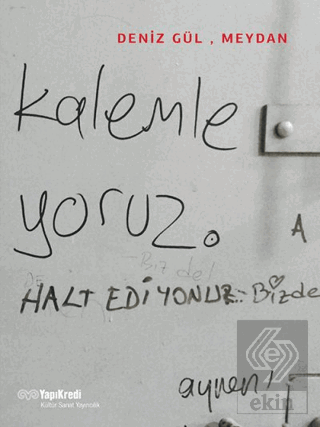 DENİZ GÜL , MEYDAN
kalemle
yoruz.
A
Biz de!
HALT EDİYONUZ.. Bizde
YapıKredi
Kültür Sanat Yayıncılık
aynen!
ekin